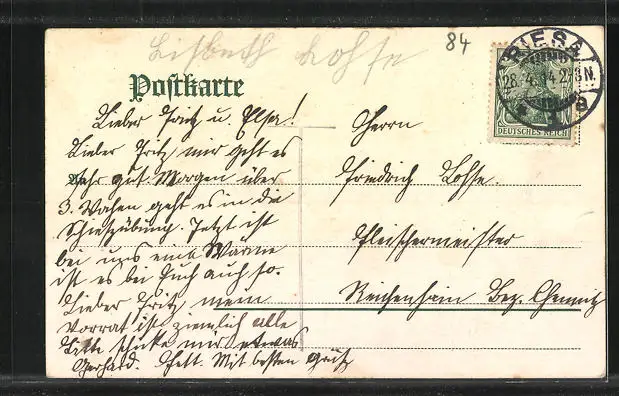 Lisbeth Lohse
84
RIESA
28.4.14.2-3N.
DEUTSCHES REICH
Postkarte
Lieber Fritz u. Elsa!
Lieber Fritz, mir geht es
sehr gut. Morgen über
3. Wochen geht es in die
Schießübung. Jetzt ist
bei uns eine Wärme
ist es bei Euch auch so.
Lieber Fritz, mein
Vorrat ist ziemlich alle
Bitte schicke mir etwas
Fett. Mit besten Grüß
Gerhard.
Herrn
Friedrich Lohse.
Fleischermeister
Reichenhain Bez. Chemnitz